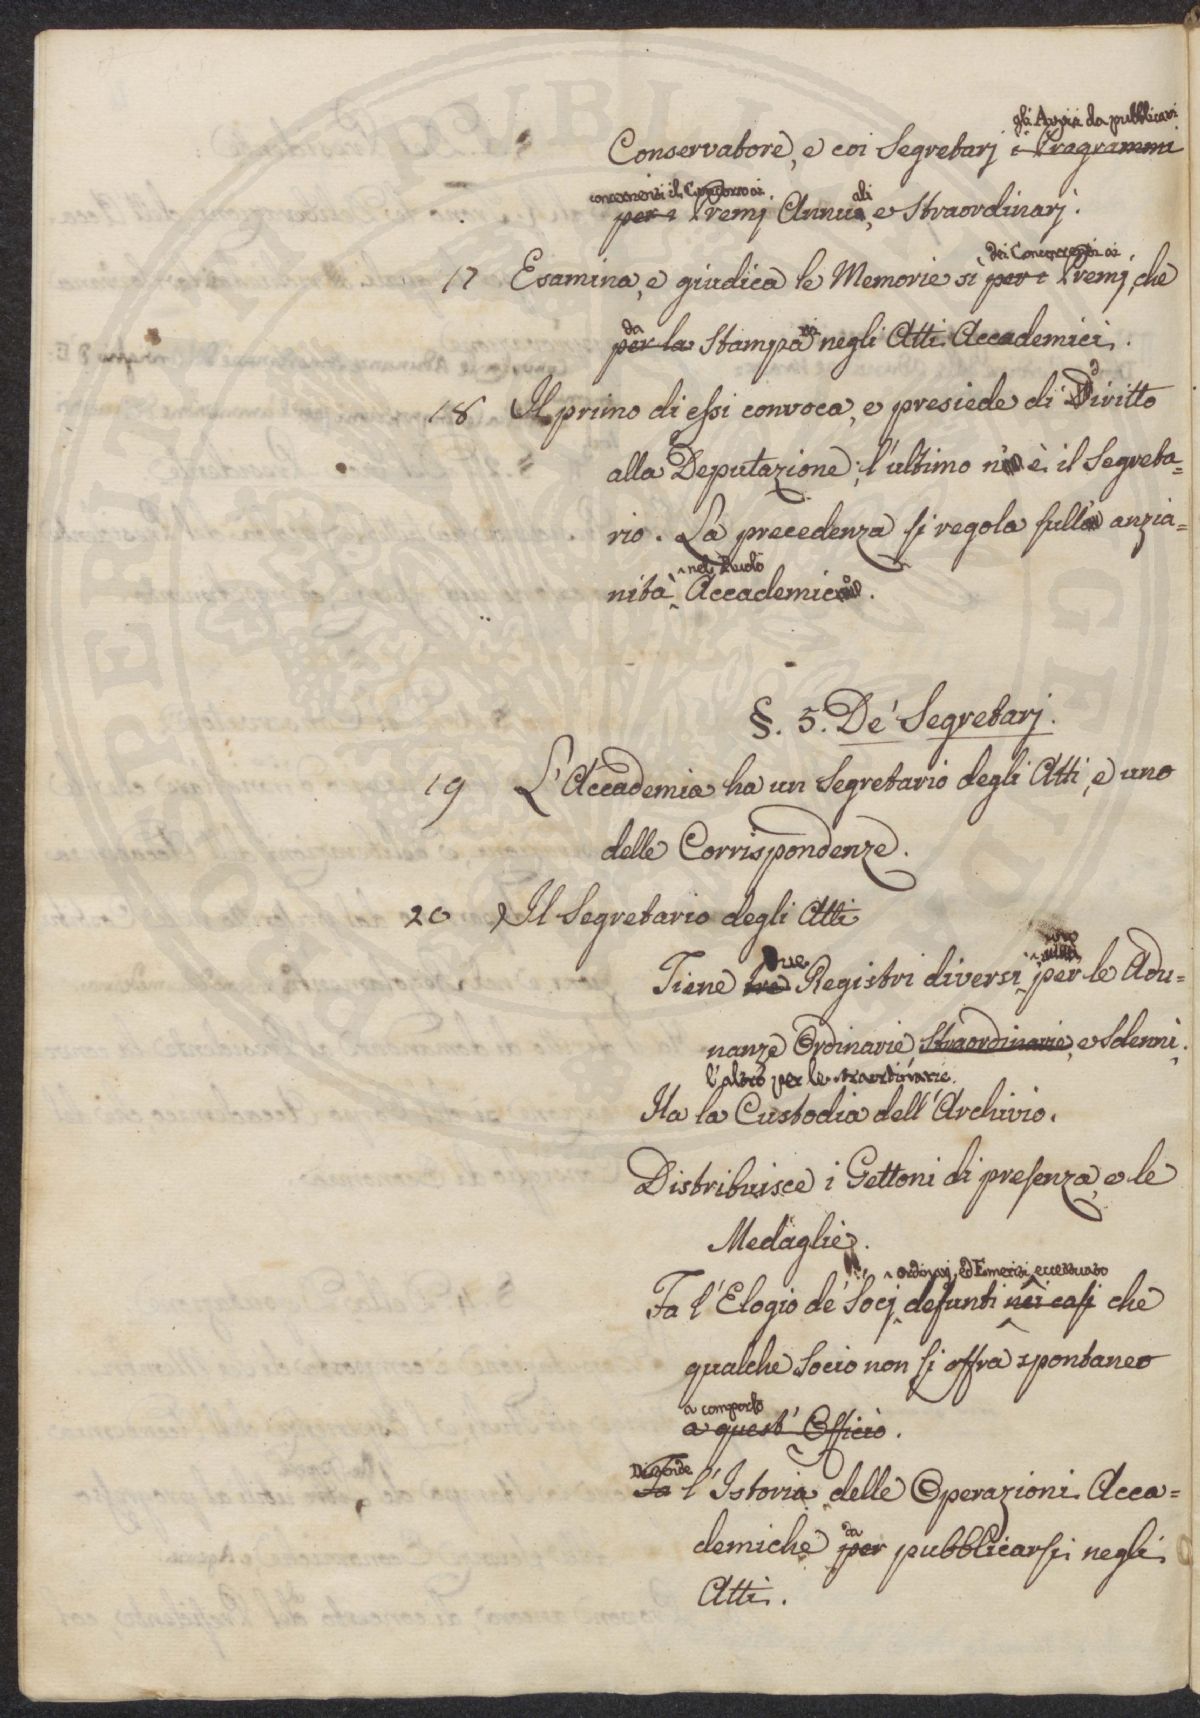 gli Avvisi da pubblicarsi
Conservatore, e coi Segretarj i Programmi
concernenti il Concorso ai
per i Premj Annuali, e Straordinarj.
dei Concorrenti ai
17 Esamina, e giudica le Memorie sì per i Premj, che
da
per la Stampa negli Atti Accademici.
18 Il primo di essi convoca, e presiede di Diritto
alla Deputazione; l'ultimo n'è il Segreta=
rio. La precedenza si regola sull' anzia=
nel Ruolo
nità Accademico.
§. 5. De' Segretarj.
19 L'Accademia ha un Segretario degli Atti, e uno
delle Corrispondenze.
20 Il Segretario degli Atti
due
Tiene tre Registri diversi per le Adu=
nanze Ordinarie, Straordinarie, e Solenni,
l'altro per le straordinarie.
Ha la Custodia dell'Archivio.
Distribuisce i Gettoni di presenza, e le
Medaglie.
ordinarj, ed Emeriti, eccettuato
Fa l'Elogio de' Socj defunti nei casi che
qualche Socio non si offra spontaneo
a comporlo
a quest' Officio.
Distende
Fa l'Istoria delle Operazioni Acca=
da
demiche per pubblicarsi negli
Atti.